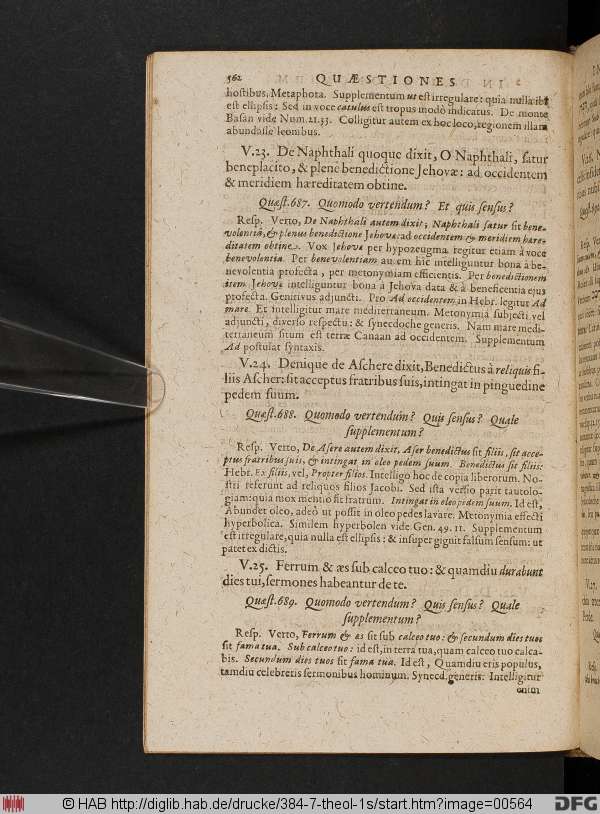 562 QUÆSTIONES
hostibus. Metaphora. Supplementum ut est irregulare: quia nulla ibi
est ellipsis: Sed in voce catulus est tropus modò indicatus. De monte
Basan vide Num. 21.33. Colligitur autem ex hoc loco, regionem illam
abundasse leonibus.
V. 23. De Naphthali quoque dixit, O Naphthali, satur
beneplacito, & plene benedictione Jehovæ: ad occidentem
& meridiem hæreditatem obtine.
Quæst. 687. Quomodo vertendum? Et quis sensus?
Resp. Verto, De Naphthali autem dixit; Naphthali satur sit bene-
volentiâ, & plenus benedictione Jehovæ: ad occidentem & meridiem hære-
ditatem obtine. Vox Jehovæ per hypozeugma regitur etiam à voce
benevolentia. Per benevolentiam autem hîc intelliguntur bona à be-
nevolentia profecta, per metonymiam efficientis. Per benedictionem
item Jehovæ intelliguntur bona à Jehova data & à beneficentia ejus
profecta. Genitivus adjuncti. Pro Ad occidentem, in Hebr. legitur Ad
mare. Et intelligitur mare mediterraneum. Metonymia subjecti vel
adjuncti, diverso respectu: & synecdoche generis. Nam mare medi-
terraneum situm est terræ Canaan ad occidentem. Supplementum
Ad postulat syntaxis.
V. 24. Denique de Aschere dixit, Benedictus à reliquis fi-
liis Ascher: sit acceptus fratribus suis, intingat in pinguedine
pedem suum.
Quæst. 688. Quomodo vertendum? Quis sensus? Quale
supplementum?
Resp. Verto, De Asere autem dixit, Aser benedictus sit filiis, sit acce-
ptus fratribus suis, & intingat in oleo pedem suum. Benedictus sit filiis:
Hebr. Ex filiis, vel, Propter filios. Intelligo hoc de copia liberorum. No-
stri referunt ad reliquos filios Jacobi. Sed ista versio parit tautolo-
giam: quia mox mentio sit fratrum. Intingat in oleo pedem suum. Id est,
Abundet oleo, adeò ut possit in oleo pedes lavare. Metonymia effecti
hyperbolica. Similem hyperbolen vide Gen. 49. 11. Supplementum
est irregulare, quia nulla est ellipsis: & insuper gignit falsum sensum: ut
patet ex dictis.
V. 25. Ferrum & æs sub calceo tuo: & quamdiu durabunt
dies tui, sermones habeantur de te.
Quæst. 689. Quomodo vertendum? Quis sensus? Quale
supplementum?
Resp. Verto, Ferrum & æs sit sub calceo tuo: & secundum dies tuos
sit fama tua. Sub calceo tuo: id est, in terra tua, quam calceo tuo calca-
bis. Secundum dies tuos sit fama tua. Id est, Quamdiu eris populus,
tamdiu celebreris sermonibus hominum. Synecd. generis. Intelligitur
enim
© HAB http://diglib.hab.de/drucke/384-7-theol-1s/start.htm?image=00564
DFG